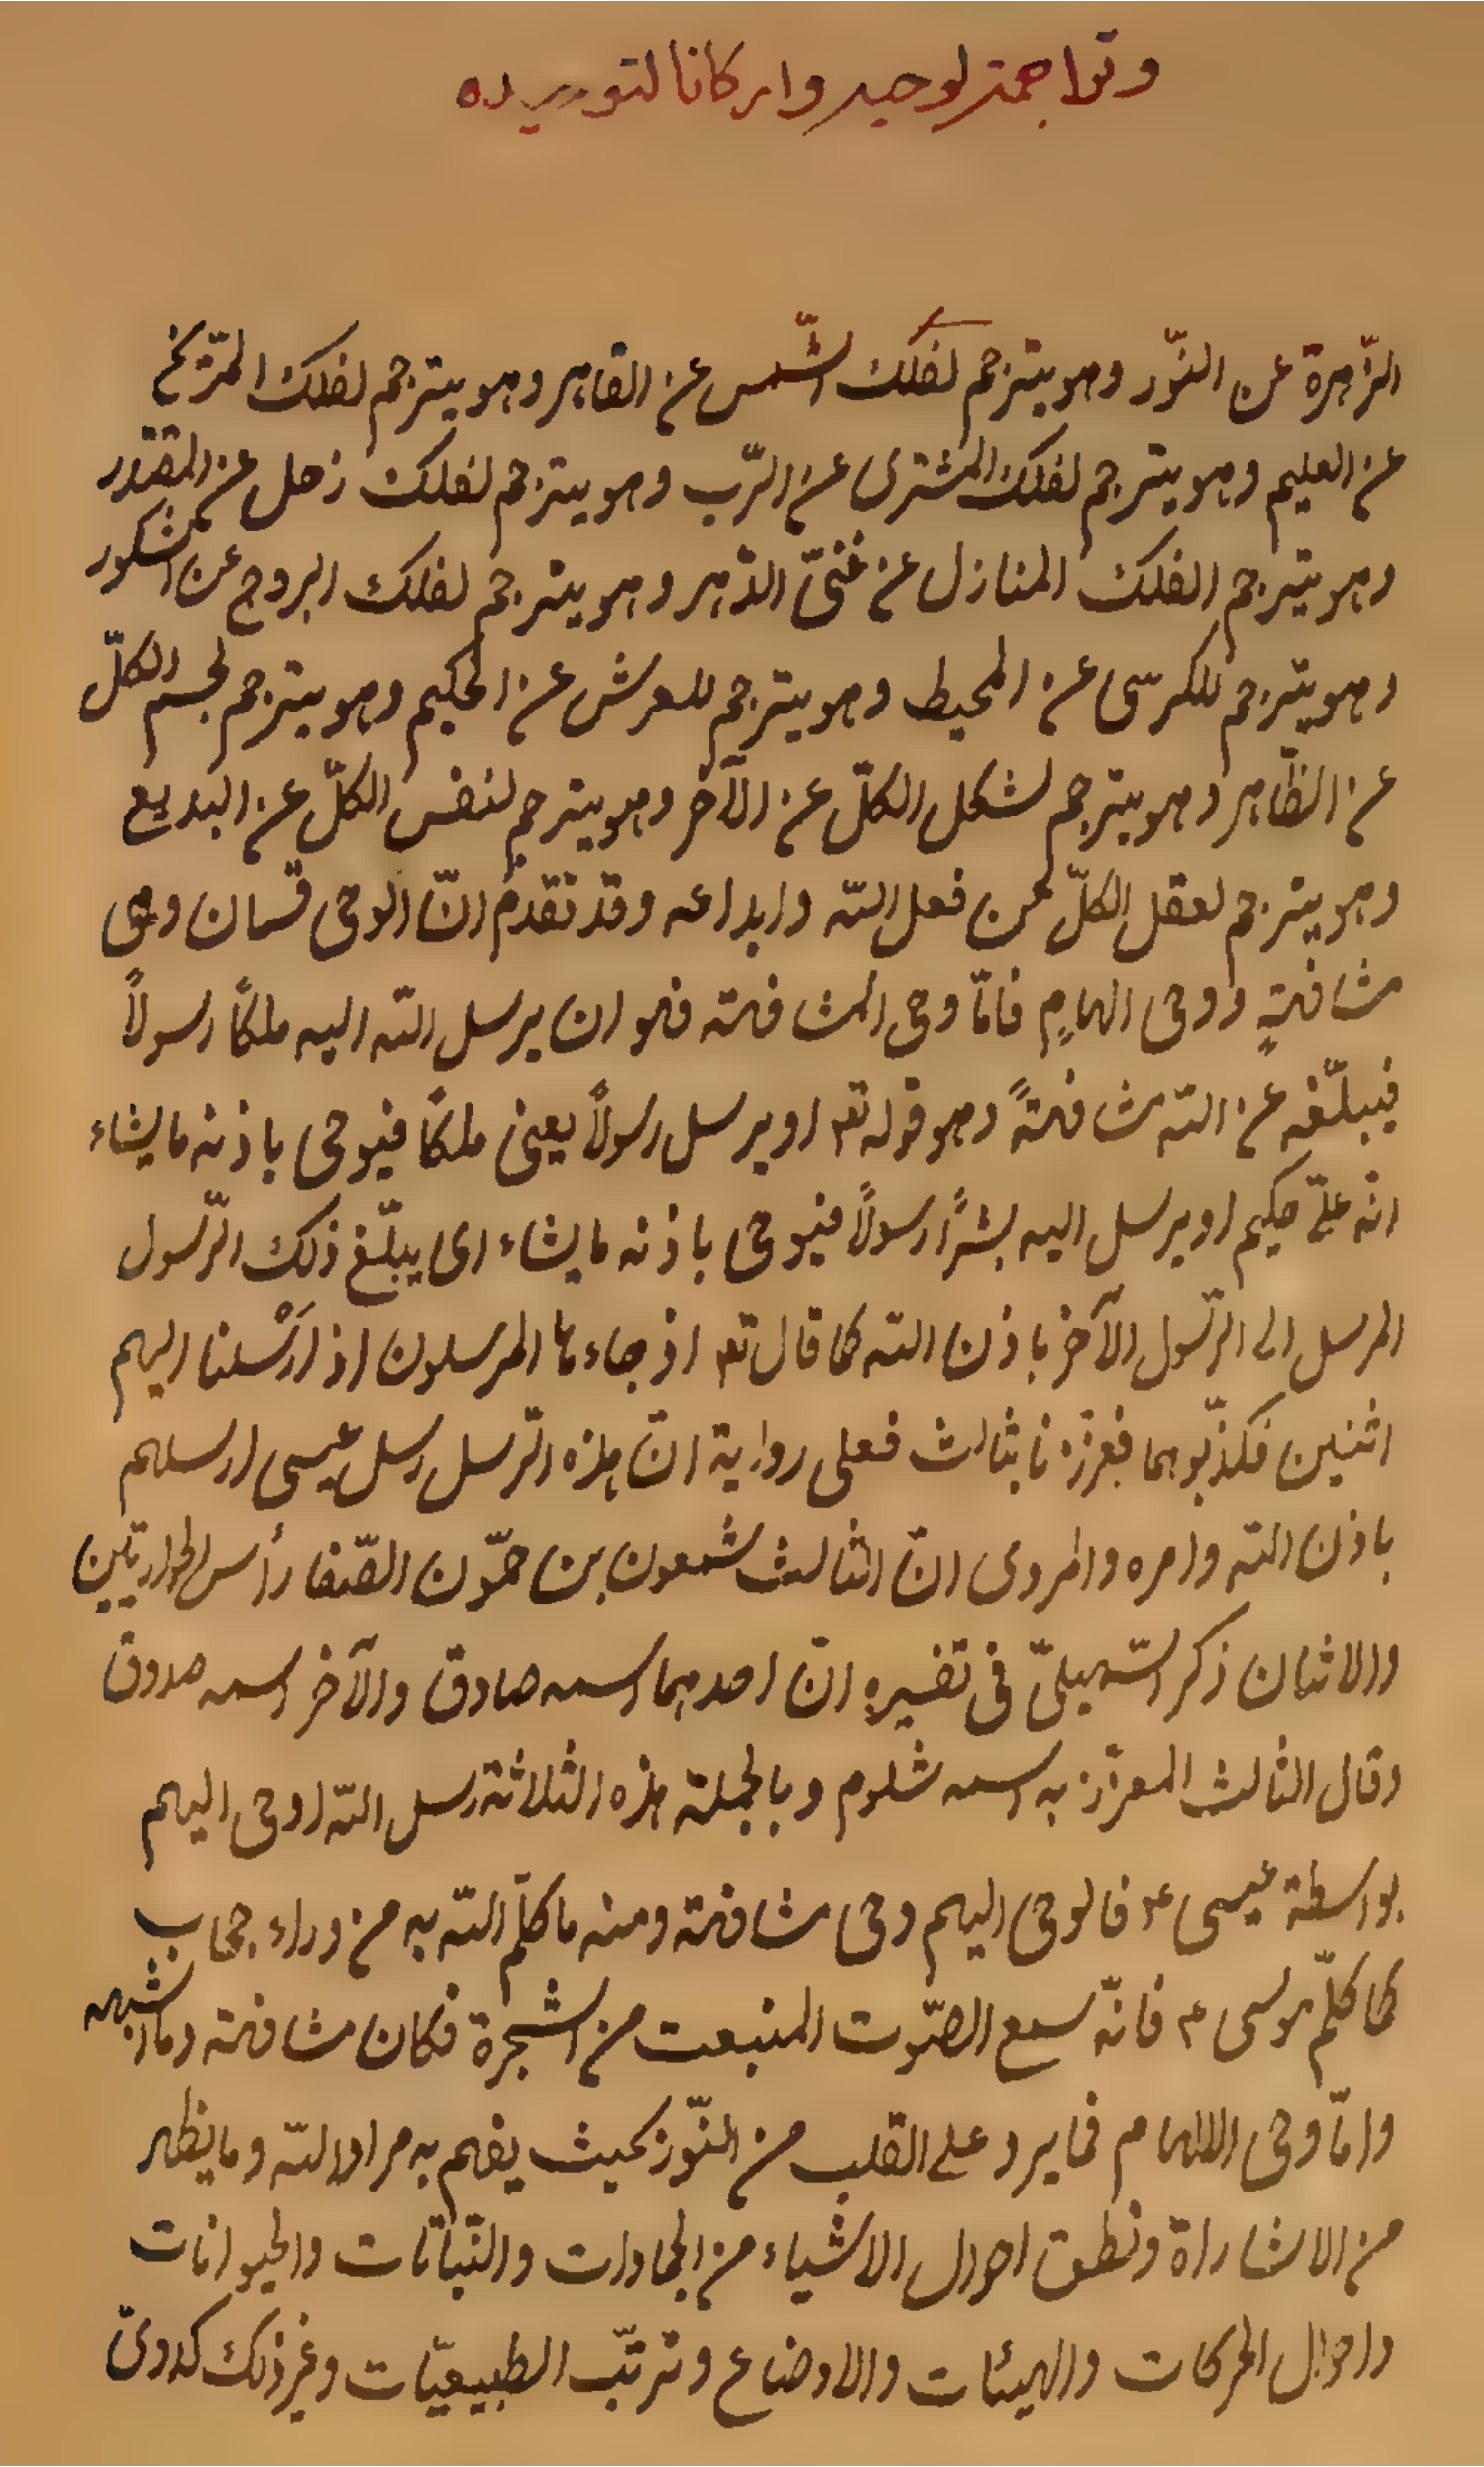 وتراجمة لوحيه واركانا لتوحيده
الزّهرة عن النّور وهو يترجم لفلك الشّمس عن القاهر وهو يترجم لفلك المرّيخ
عن العليم وهو يترجم لفلك المشترى عن الرّب وهو يترجم لفلك زحل عن المقتدر
وهو يترجم الفلك المنازل عن غنىّ الدّهر وهو يترجم لفلك البروج عن الشكور
وهو يترجم للكرسّى عن المحيط وهو يترجم للعرش عن الحكيم وهو يترجم لجسم الكلّ
عن الظّاهر وهو يترجم لشكل الكلّ عن الآخر وهو يترجم لنفس الكلّ عن البديع
وهو يترجم لعقل الكلّ عن فعل اللّه وابداعه وقد تقدّم انّ الوحى قسمان وحى
مشافهةٍ ووحى الهامٍ فامّا وحى المشافهة فهو ان يرسل اللّه اليه ملكاً رسولاً
فيبلّغه عن اللّه مشافهةً وهو قوله تع او يرسل رسولاً يعنى ملكاً فيوحى باذنه ما يشاء
انّه علىّ حكيم او يرسل اليه بشراً رسولاً فيوحى باذنه ما يشاء اى يبلّغ ذلك الرّسول
المرسل الى الرّسول الآخر باذن اللّه كما قال تع اذ جاءها المرسلون اذ اَرْسلنا اليهم
اثنين فكذّبوهما فعزّزنا بثالث فعلى رواية انّ هذه الرّسل رسل عيسى ارسلهم
باذن اللّه وامره والمروى انّ الثالث شمعون بن حمّون الصّفا رأس الحواريّين
والاثنان ذكر السّهيلىّ فى تفسيرهِ انّ احدهما اسمه صادق والآخر اسمه صدوق
وقال الثالث المعزّز به اسمه شلوم وبالجملة هذه الثلاثة رسل اللّه اوحى اليهم
بواسطة عيسى ع فالوحى اليهم وحى مشافهة ومنه ما كلّم اللّه به من وراء حجاب
كما كلّم موسى ع فانّه سمع الصّوت المنبعث من الشجرة فكان مشافهة وما اشبهه
وامّا وحى الالهام فما يرد على القلب من النّور بحيث يفهم به مراد اللّه وما يظهر
من الاشاراة ونطق احوال الاشياء من الجمادات والنّباتات والحيوانات
واحوال الحركات والهيئات والاوضاع وترتّب الطبيعيّات وغير ذلك كدوىّ